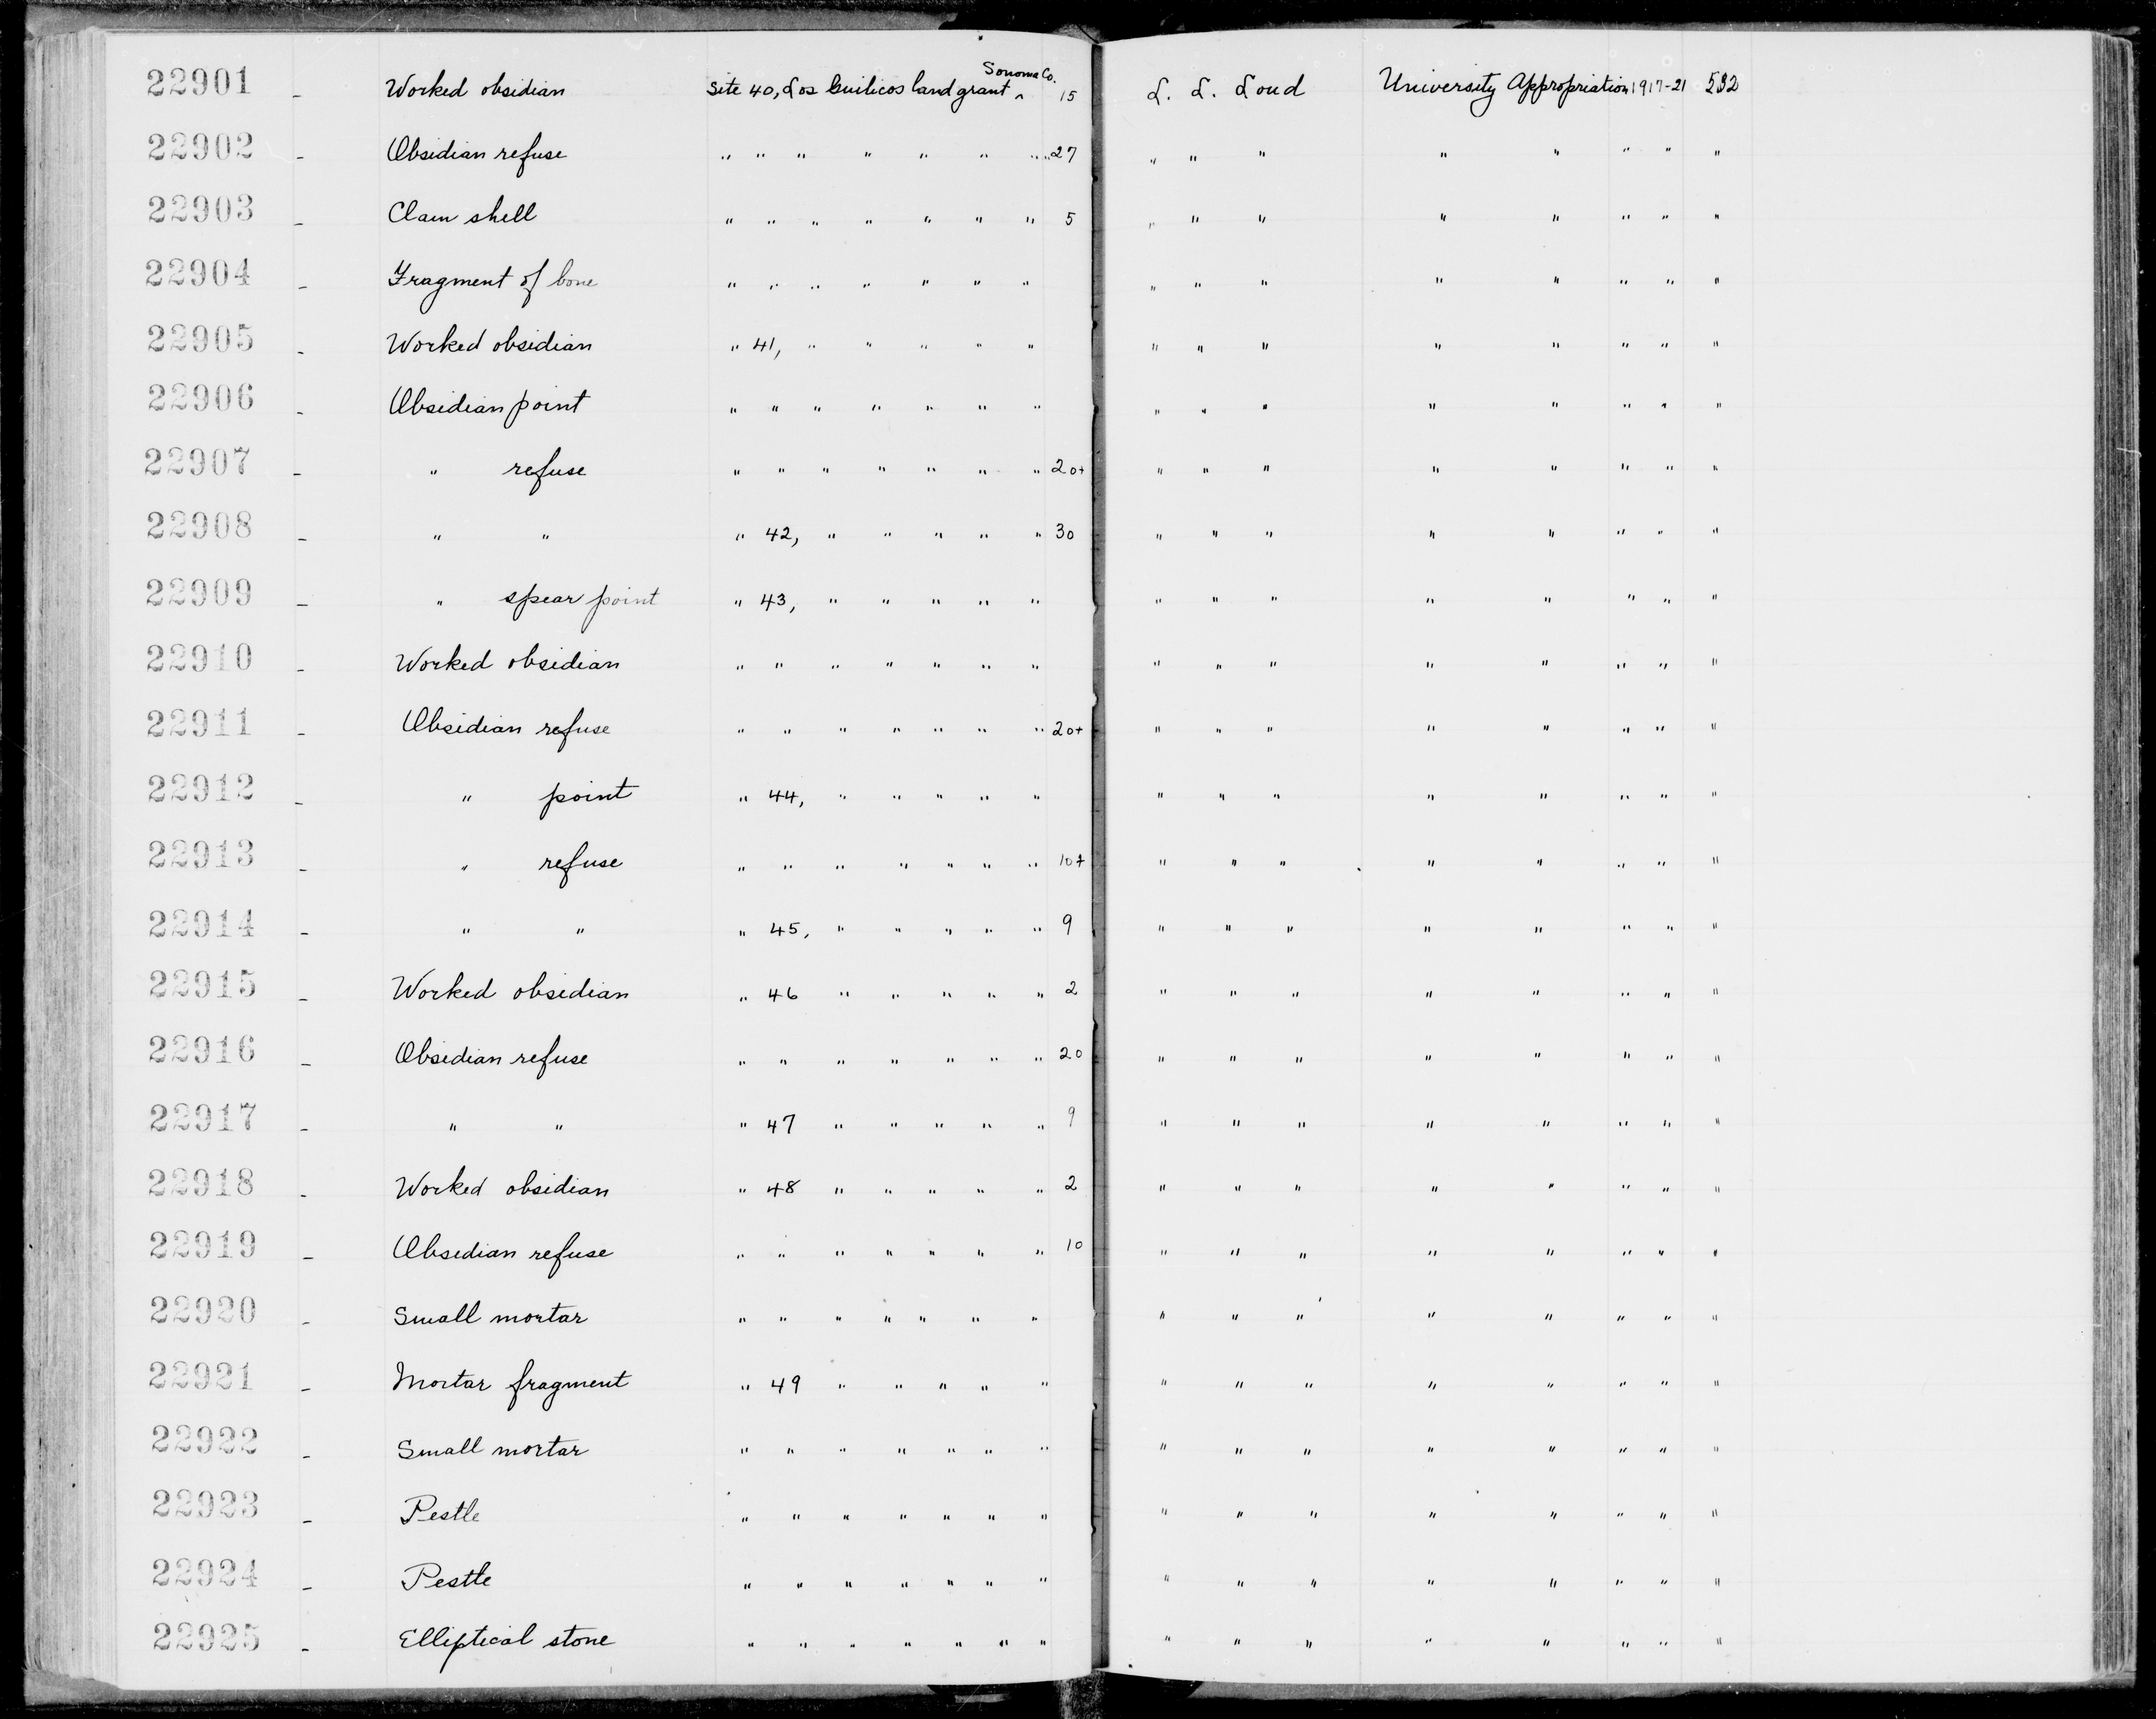 22901 - Worked obsidian Site 40, Los Guilicos land grant ^ Sonoma Co. 15 L. L. Loud University Appropriation 1917-21 532
22902 - Obsidian refuse " " " " " " " " 27 " " " " " " " "
22903 - Clam shell " " " " " " " 5 " " " " " " " "
22904 - Fragment of bone " " " " " " " " " " " " " " "
22905 - Worked obsidian " 41, " " " " " " " " " " " " "
22906 - Obsidian point " " " " " " " " " " " " " " "
22907 - " refuse " " " " " " " 20+ " " " " " " " "
22908 - " " " 42, " " " " " 30 " " " " " " " "
22909 - " spear point " 43, " " " " " " " " " " " " "
22910 - Worked obsidian " " " " " " " " " " " " " " "
22911 - Obsidian refuse " " " " " " " 20+ " " " " " " " "
22912 - " point " 44, " " " " " " " " " " " " "
22913 - " refuse " " " " " " " 10+ " " " " " " " "
22914 - " " " 45, " " " " " 9 " " " " " " " "
22915 - Worked obsidian " 46 " " " " " 2 " " " " " " " "
22916 - Obsidian refuse " " " " " " " 20 " " " " " " " "
22917 - " " " 47 " " " " " 9 " " " " " " " "
22918 - Worked obsidian " 48 " " " " " 2 " " " " " " " "
22919 - Obsidian refuse " " " " " " " 10 " " " " " " " "
22920 - Small mortar " " " " " " " " " " " " " " "
22921 - Mortar fragment " 49 " " " " " " " " " " " " "
22922 - Small mortar " " " " " " " " " " " " " " "
22923 - Pestle " " " " " " " " " " " " " " "
22924 - Pestle " " " " " " " " " " " " " " "
22925 - Elliptical stone " " " " " " " " " " " " " " "